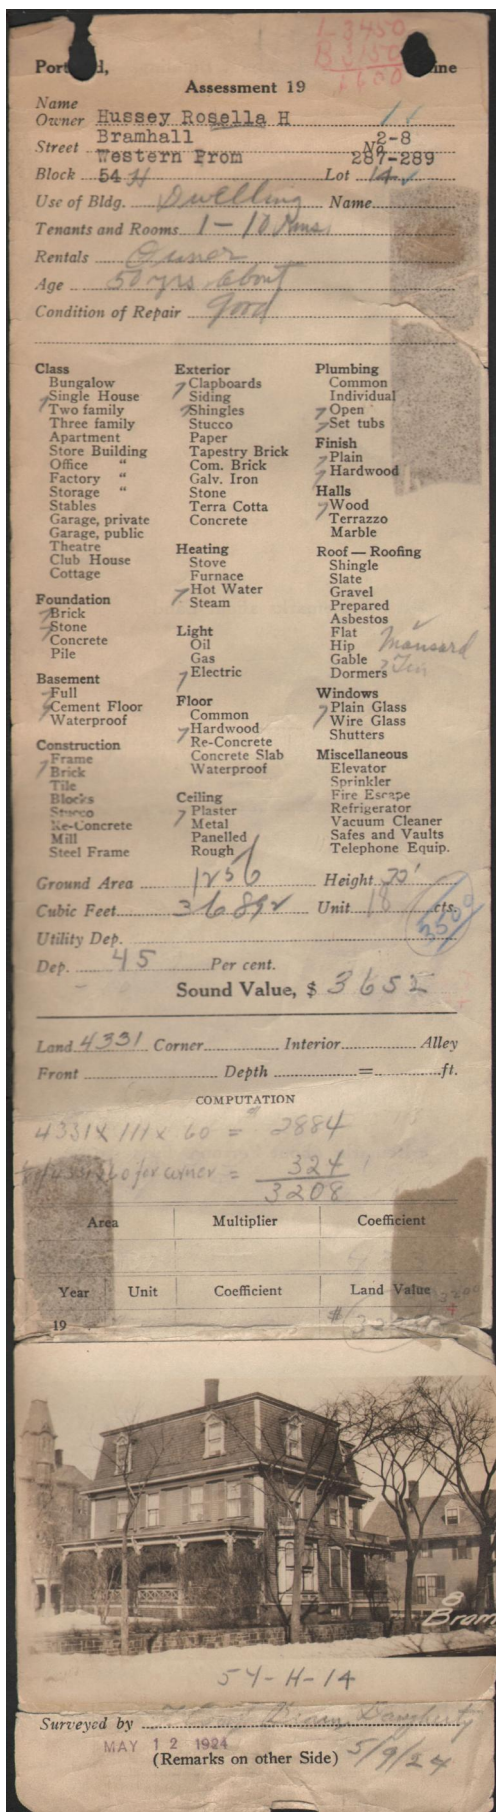 L 3450
B 3150
Portland, Maine
Assessment 19
Name
Owner Hussey Rosella H
Street Bramhall No. 2-8
Western Prom 287-289
Block 54 H Lot 14
Use of Bldg. Dwelling Name
Tenants and Rooms 1-10 Rms
Rentals Owner
Age 50 yrs about
Condition of Repair Good
Class
Bungalow
Single House
Two family
Three family
Apartment
Store Building
Office "
Factory "
Storage "
Stables
Garage, private
Garage, public
Theatre
Club House
Cottage
Foundation
Brick
Stone
Concrete
Pile
Basement
Full
Cement Floor
Waterproof
Construction
Frame
Brick
Tile
Blocks
Stucco
Re-Concrete
Mill
Steel Frame
Exterior
Clapboards
Siding
Shingles
Stucco
Paper
Tapestry Brick
Com. Brick
Galv. Iron
Stone
Terra Cotta
Concrete
Heating
Stove
Furnace
Hot Water
Steam
Light
Oil
Gas
Electric
Floor
Common
Hardwood
Re-Concrete
Concrete Slab
Waterproof
Ceiling
Plaster
Metal
Panelled
Rough
Plumbing
Common
Individual
Open
Set tubs
Finish
Plain
Hardwood
Halls
Wood
Terrazzo
Marble
Roof — Roofing
Shingle
Slate
Gravel
Prepared
Asbestos
Flat
Hip Mansard
Gable
Dormers 7 Tin
Windows
Plain Glass
Wire Glass
Shutters
Miscellaneous
Elevator
Sprinkler
Fire Escape
Refrigerator
Vacuum Cleaner
Safes and Vaults
Telephone Equip.
Ground Area 1256 Height
Cubic Feet 36892 Unit 18 cts.
3500
Utility Dep.
Dep. 45 Per cent.
Sound Value, $ 3652
Land 4331 Corner Interior Alley
Front Depth = ft.
COMPUTATION
4331 x 111 x 60 = 2884
for corner = 324
3208
Area Multiplier Coefficient
Year Unit Coefficient Land Value
19
8
Bram
54-H-14
Surveyed by Daugherty
MAY 12 1924
5/9/24
(Remarks on other Side)